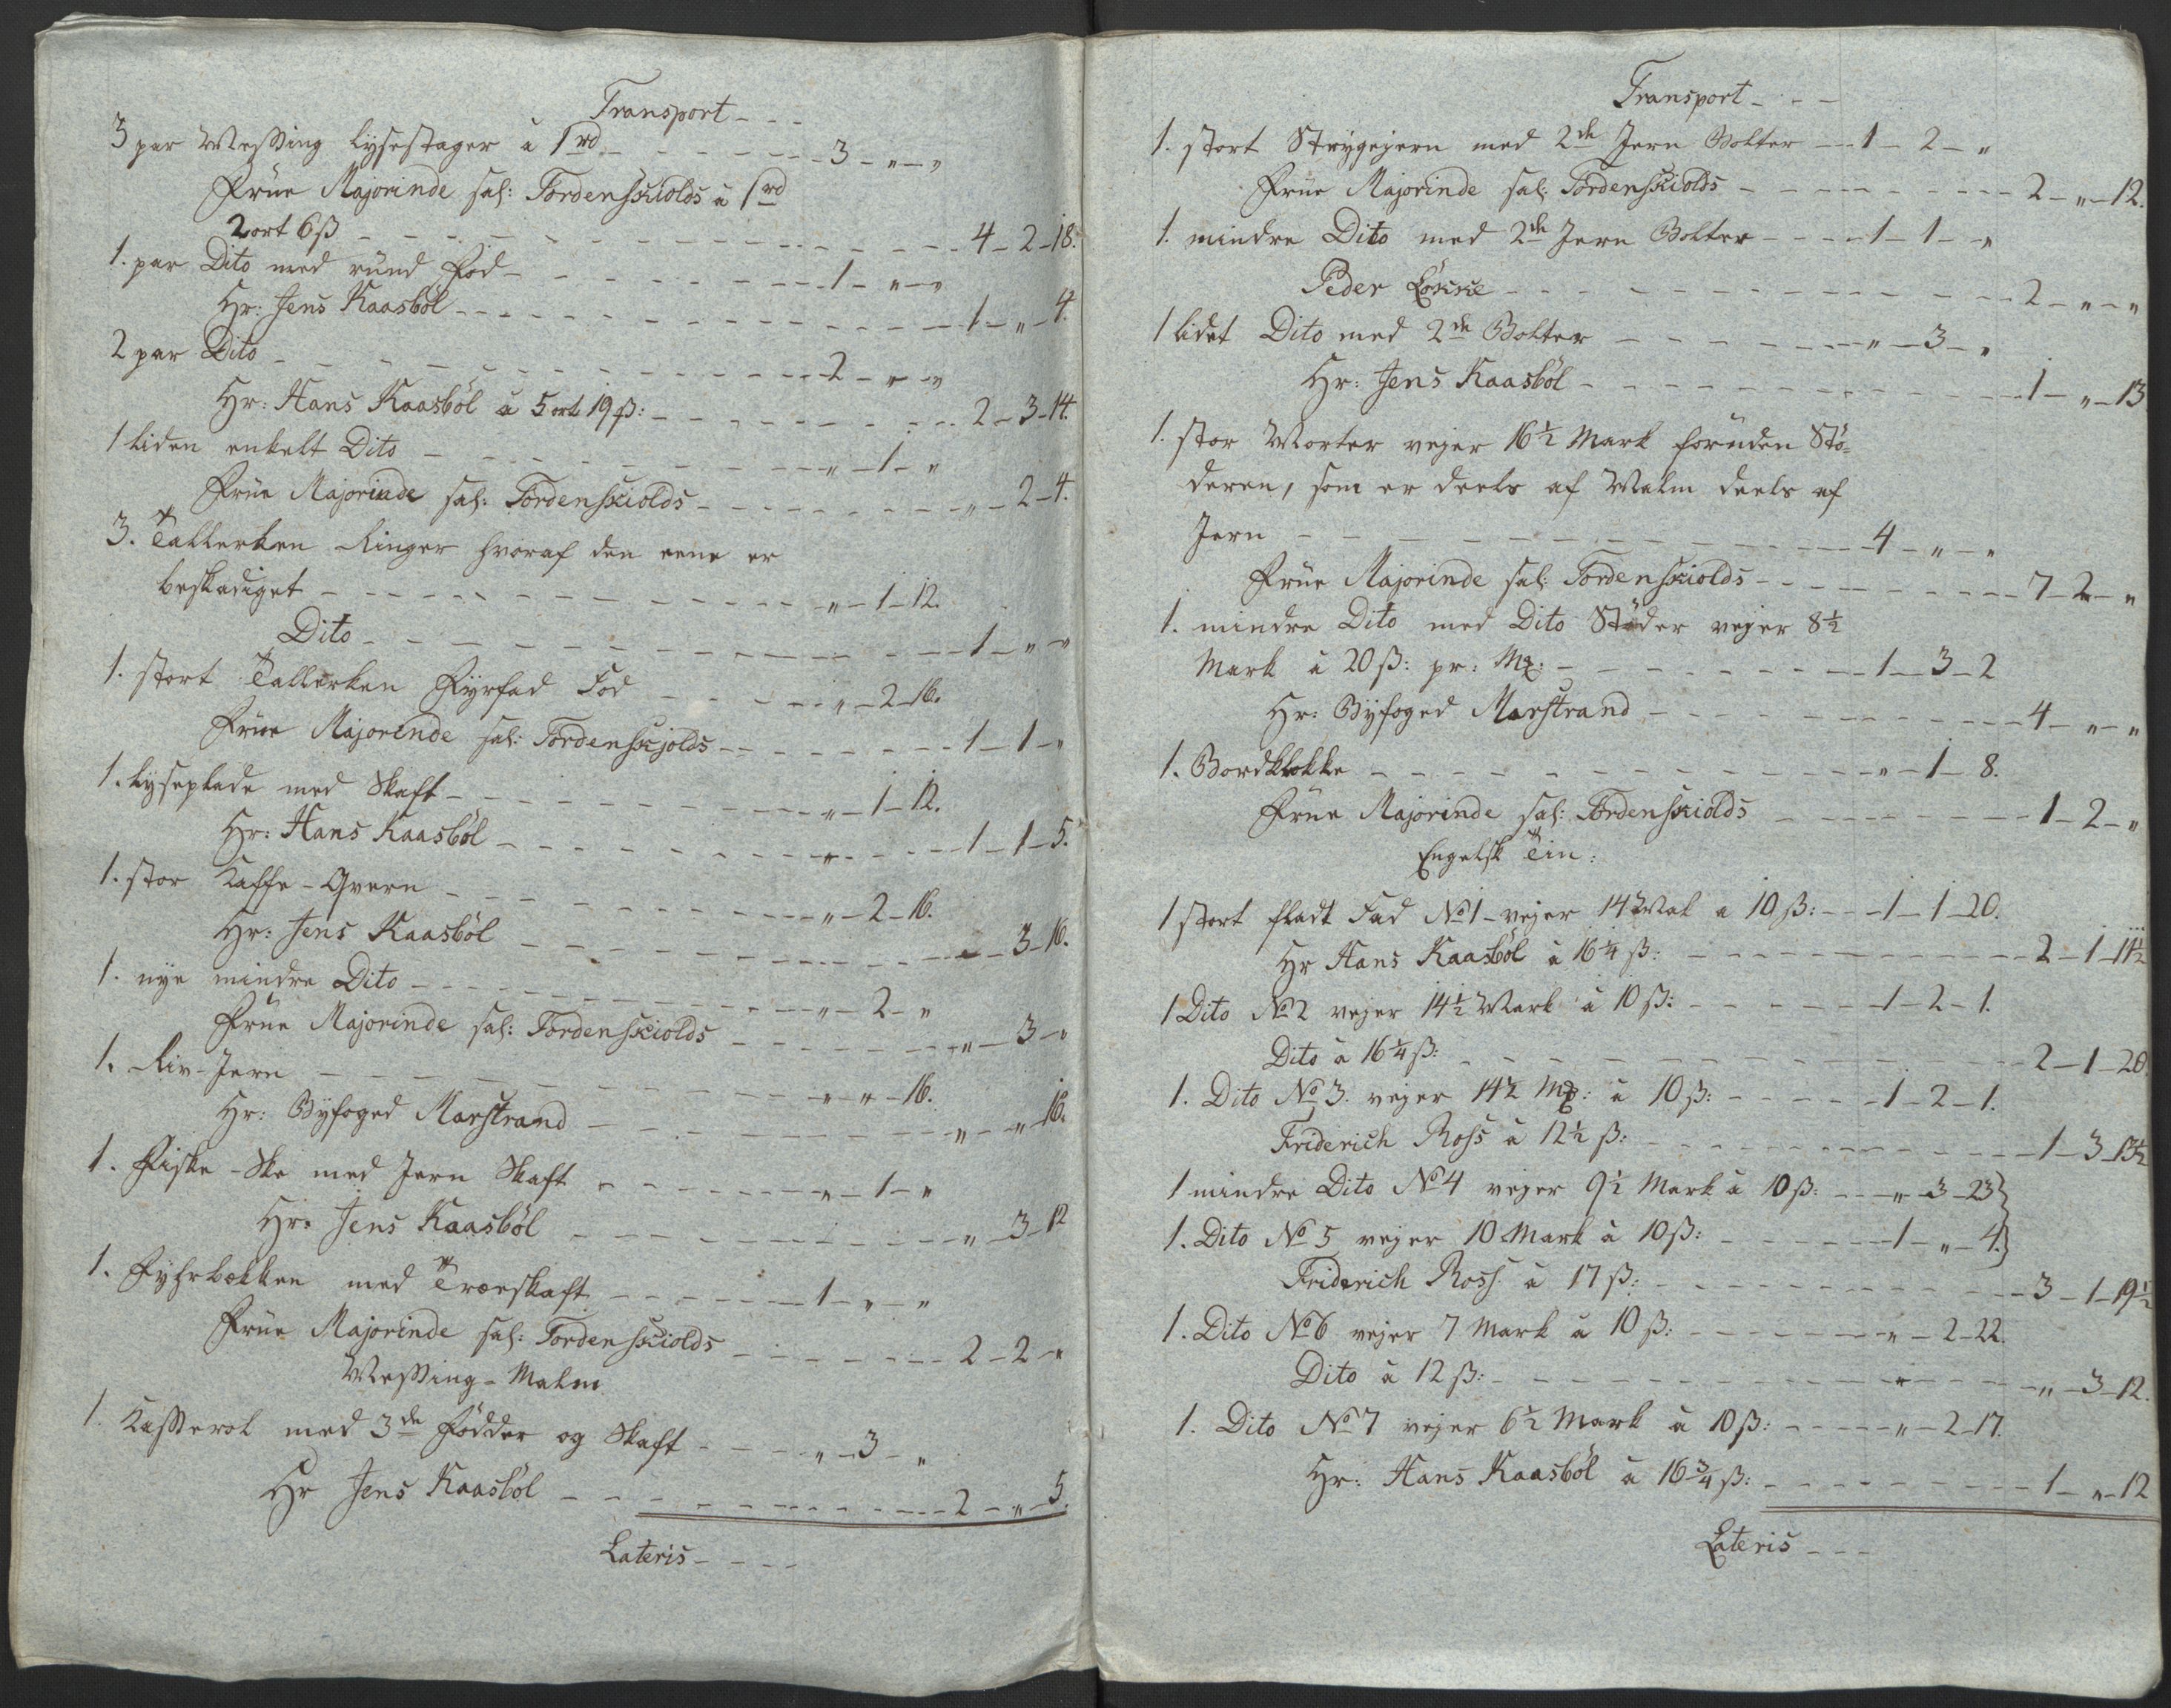 Transport - - -
3 par Messing Lysestager à 1 rd - - - 3 - „ - „
Frue Majorinde sal: Tordenskiolds à 1 rd
2 ort 6 ß - - - 4 - 2 - 18.
1. par Dito med rund Fod - - - 1 - „ - „
Hr: Jens Kaasböl - - - 1 - „ - 4.
2 par Dito - - - 2 - „ - „
Hr: Hans Kaasböl à 5 ort 19 ß: - - - 2 - 3 - 14.
1 liden enkelt Dito - - - „ - 1 - „
Frue Majorinde sal: Tordenskiolds - - - „ - 2 - 4.
3. Tallerken Ringer hvoraf den eene er
beskadiget - - - „ - 1 - 12.
Dito - - - 1 - „ - „
1. stort Tallerken Fyrfad Fod - - - „ - 2 - 16.
Frue Majorinde sal: Tordenskjolds - - - 1 - 1 - „
1. Lyseplade med Skaft - - - „ - 1 - 12.
Hr: Hans Kaasböl - - - 1 - 1 - 5.
1. stor Kaffe-Qvern - - - „ - 2 - 16.
Hr: Jens Kaasböl - - - „ - 3 - 16.
1. nye mindre Dito - - - „ - 2 - „
Frue Majorinde sal: Tordenskiolds - - - „ - 3 - „
1. Riv-Jern - - - „ - „ - 16.
Hr: Byfoged Marstrand - - - „ - „ - 16.
1. Fiske-Ske med Jern Skaft - - - „ - 1 - „
Hr: Jens Kaasböl - - - „ - 3 - 12
1. Fyhrbekken med Træeskaft - - - 1 - „ - „
Frue Majorinde sal: Tordenskiolds - - - 2 - 2 - „
Messing-Malm
1. Kasserol med 3de Födder og Skaft - - - „ - 3 - „
Hr Jens Kaasböl - - - 2 - „ - 5.
Lateris - - - -
Transport - - -
1. stort Strygejern med 2de Jern Bolter - - - 1 - 2 - „
Frue Majorinde sal: Tordenskiolds - - - 2 - „ - 12.
1. mindre Dito med 2de Jern Bolter - - - 1 - 1 - „
Peder Lökke - - - 2 - „ - „
1 lidet Dito med 2de Bolter - - - „ - 3 - „
Hr: Jens Kaasböl - - - 1 - „ - 13
1. stor Morter vejer 16½ Mark foruden Stö-
deren, som er deels af Malm deels af
Jern - - - 4 - „ - „
Frue Majorinde sal: Tordenskiolds - - - 7 - 2 - „
1. mindre Dito med Dito Stöder vejer 8½
Mark à 20 ß: pr: Mk: - - - 1 - 3 - 2
Hr: Byfoged Marstrand - - - 4 - „ - „
1. Bordklokke - - - „ - 1 - 8.
Frue Majorinde sal: Tordenskiolds - - - 1 - 2 - „
Engelsk Tin:
1 stort fladt Fad No 1 - vejer 14 Mk à 10 ß: - - - 1 - 1 - 20.
Hr Hans Kaasböl à 16¼ ß: - - - 2 - 1 - 11½
1 Dito No 2 vejer 14½ Mark à 10 ß: - - - 1 - 2 - 1.
Dito à 16¼ ß: - - - 2 - 1 - 20.
1. Dito No 3. vejer 14½ Mk: à 10 ß: - - - 1 - 2 - 1.
Friderich Ross à 12½ ß: - - - 1 - 3 - 13½
1 mindre Dito No 4 vejer 9½ Mark à 10 ß: - - - „ - 3 - 23 }
1. Dito No 5 vejer 10 Mark à 10 ß: - - - 1 - „ - 4. }
Friderich Ross. à 17 ß: - - - 3 - 1 - 19½
1. Dito No 6 vejer 7 Mark à 10 ß: - - - „ - 2 - 22.
Dito à 12 ß: - - - „ - 3 - 12.
1. Dito No 7 vejer 6½ Mark à 10 ß: - - - „ - 2 - 17.
Hr: Hans Kaasböl à 16¾ ß: - - - 1 - „ - 12
Lateris - - -